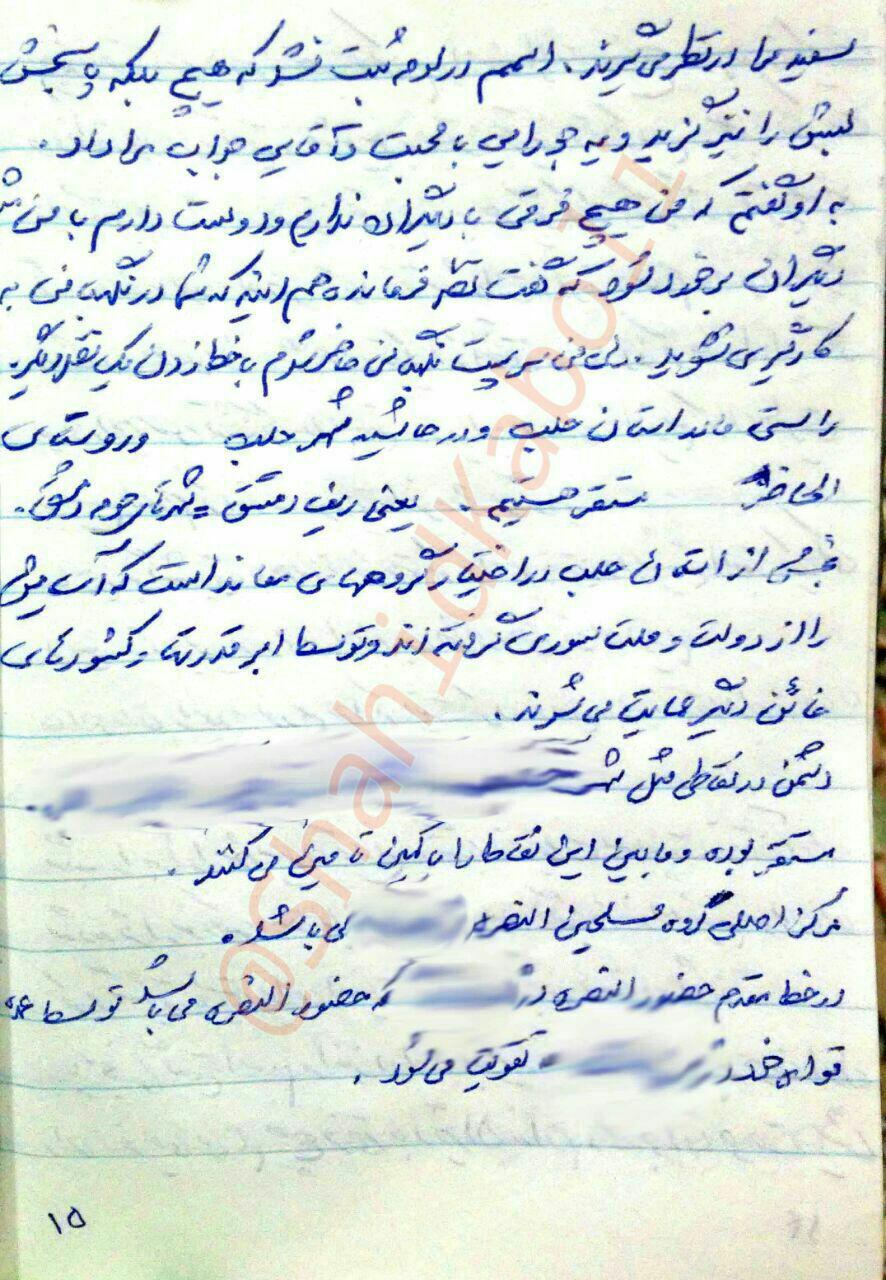 سفید ما در نظر می گیرند. اسمم در لوحه ثبت نشد که هیچ بلکه پاسخش
لبش را نیز گزید و به جورایی با محبت و آقایی جواب مرا داد.
به او گفتم که من هیچ فرقی با دیگران ندارم و دوست دارم با من
دیگران برخورد شود که گفت نظر فرمانده هم اینه که شما در نگهبانی به
کارگیری نشوید. ولی من سرپست نگهبانی حاضر شدم با خط زدن یک نفر دیگر.
راستی ما در استان حلب و در حاشیه شهر حلب و روستای
الحاضر مستقر هستیم. یعنی ریف دمشق = شهرهای حومه دمشق.
بخشی از استان حلب در اختیار گروههای معاند است که آن
را از دولت و ملت سوری گرفته اند و توسط ابرقدرتها و کشورهای
خائن دیگر حمایت می شوند.
دشمن در نقاطی مثل شهر
مستقر بوده و مابین این نقاط را با کمین تامین می کنند.
مرکز اصلی گروه مسلحین النصره می باشد.
در خط مقدم حضور النصره در که حضور النصره می باشد توسط
قواه خود در تقویت می شود.
۱۵
@Shahidkaboli